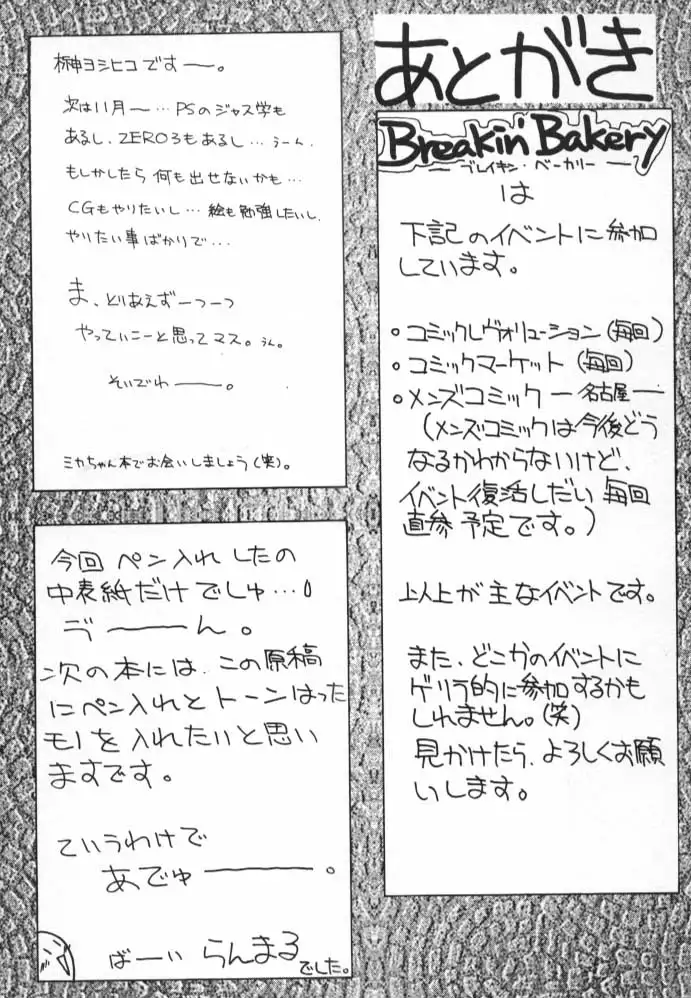 あとがき
Breakin' Bakery
ー ブレイキン・ベーカリー ー
は
下記のイベントに参加
しています。
。コミックレヴォリューション(毎回)
。コミックマーケット(毎回)
。メンズコミック ー名古屋ー
(メンズコミックは今後どう
なるかわからないけど、
イベント復活しだい毎回
直参予定です。)
以上が主なイベントです。
また、どこかのイベントに
ゲリラ的に参加するかも
しれません。(笑)
見かけたら、よろしくお願
いします。
榊ヨシヒコですー。
次は11月〜…PSのジャス学も
あるし、ZERO3もあるし…うーん、
もしかしたら何も出せないかも…
CGもやりたいし…絵も勉強したいし、
やりたい事ばかりで…
ま、とりあえずーつーつ
やっていこーと思ってマス。うん。
そいでわー。
ミカちゃん本でお会いしましょう(笑)。
今回ペン入れしたの
中表紙だけでしゅ…
ゔーーん。
次の本には、この原稿
にペン入れとトーンはった
モノを入れたいと思い
ますです。
ていうわけで
あでゅーーー。
ばーい らんまるでした。